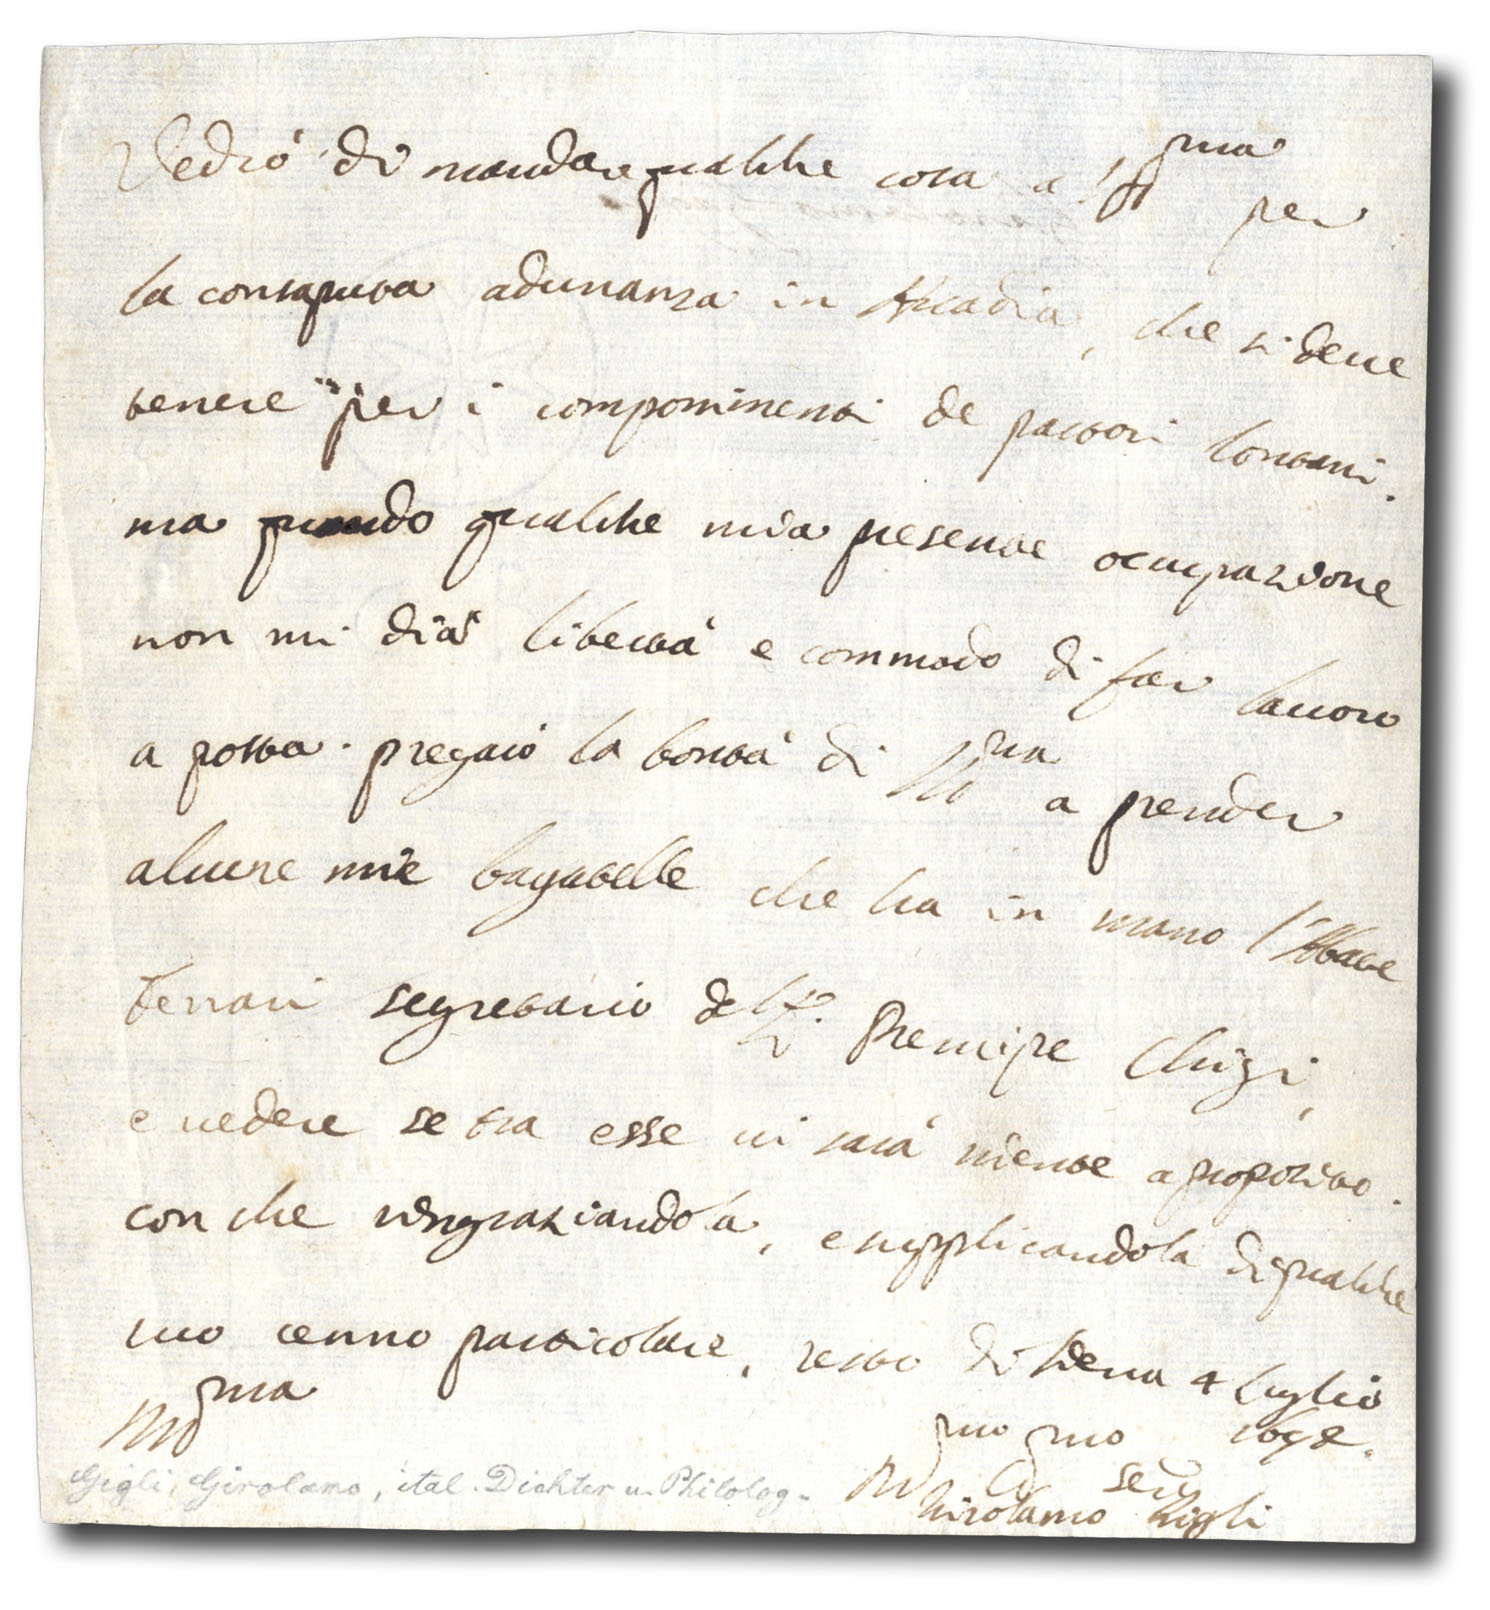 Vedrò di mandar qualche cosa a VS Illma per
la consaputa adunanza in Arcadia, che si deve
tenere per i componimenti de pastori lontani.
ma quando qualche mia presente occupazione
non mi dia libertà e commodo di far lavoro
a posta. pregarò la bontà di VS Illma a prender
alcune mie bagatelle che ha in mano l'Abate
Ferrari segretario del Sr. Prencipe Chigi,
e vedere se tra esse vi sarà niente a proposito.
con che ringraziandola, e supplicandola di qualche
suo cenno particolare, resto di Siena 4 luglio
VS Illma
Gigli, Girolamo, ital. Dichter u. Philolog.
Girolamo Gigli